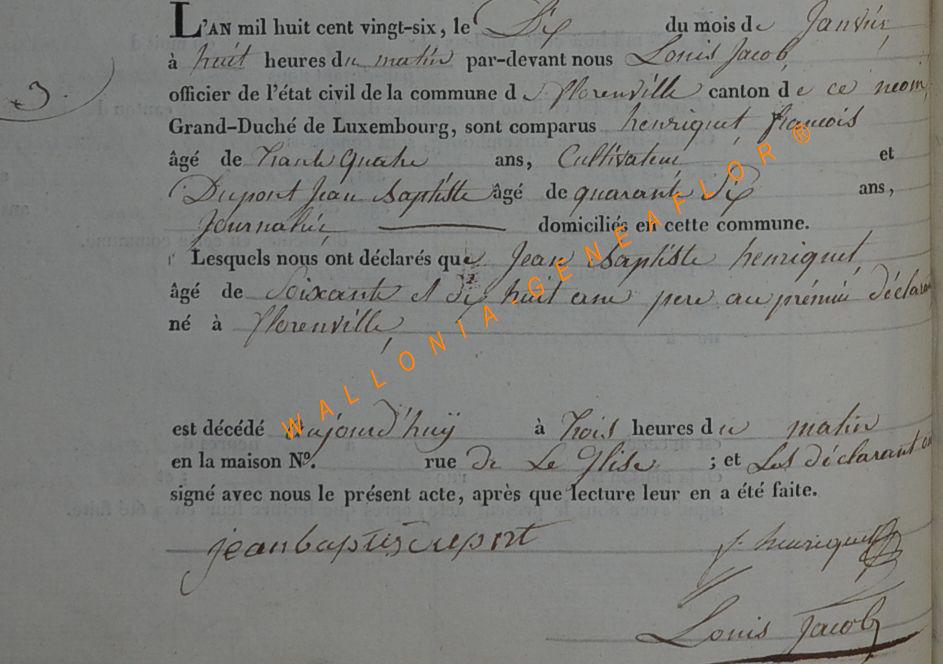 L'AN mil huit cent vingt-six, le Dix du mois de Janvier
à huit heures du matin par-devant nous Louis Jacob
3
officier de l'état civil de la commune de florenville canton de ce nom,
Grand-Duché de Luxembourg, sont comparus henriquet françois
âgé de trante quatre ans, Cultivateur et
Dupont Jean Baptiste âgé de quarante Dix ans,
journalier domiciliés en cette commune.
Lesquels nous ont déclarés que Jean Baptiste henriquet
âgé de Soixante et dix huit ans pere au prémier déclarant
né à florenville
est décédé aujourd'huÿ à trois heures du matin
en la maison N°. rue de Le Glise ; et Les déclarant
signé avec nous le présent acte, après que lecture leur en a été faite.
jean baptis dupont
f henriquet
Louis Jacob
WALLONIA-GENEAFLOR ®